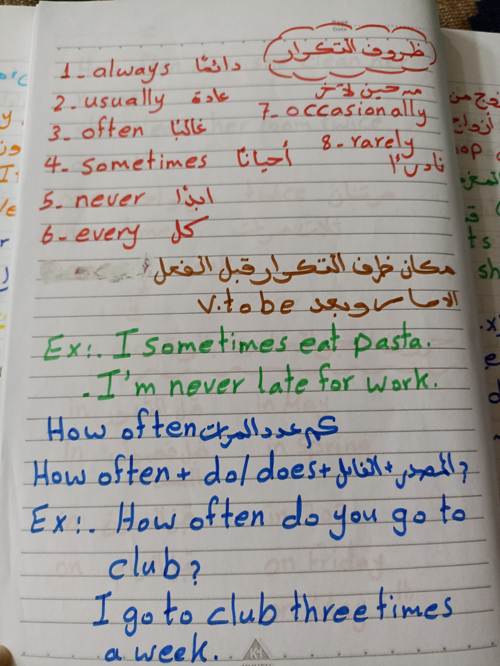 ظروف التكرار
1- always دائمًا
2- usually عادة
3- often غالبًا
4- sometimes أحيانًا
5- never ابدًا
6- every كل
من حين لآخر
7- occasionally
8- rarely
نادرًا
مكان ظرف التكرار قبل الفعل
الاساسي وبعد v.to be
Ex:. I sometimes eat pasta.
- I'm never late for work.
How often كم عدد المرات
How often + do/does + الفاعل + المصدر ?
Ex:. How often do you go to
club?
I go to club three times
a week.